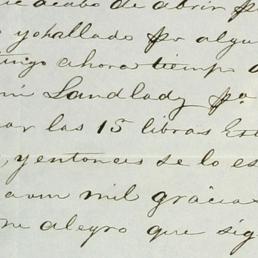 acabo de abrir
yo hallado pr algu
tengo ahora tiempo
mi Landlady pa
las 15 libras Est
, y entonces se lo es
mil gracias
me alegro que sig